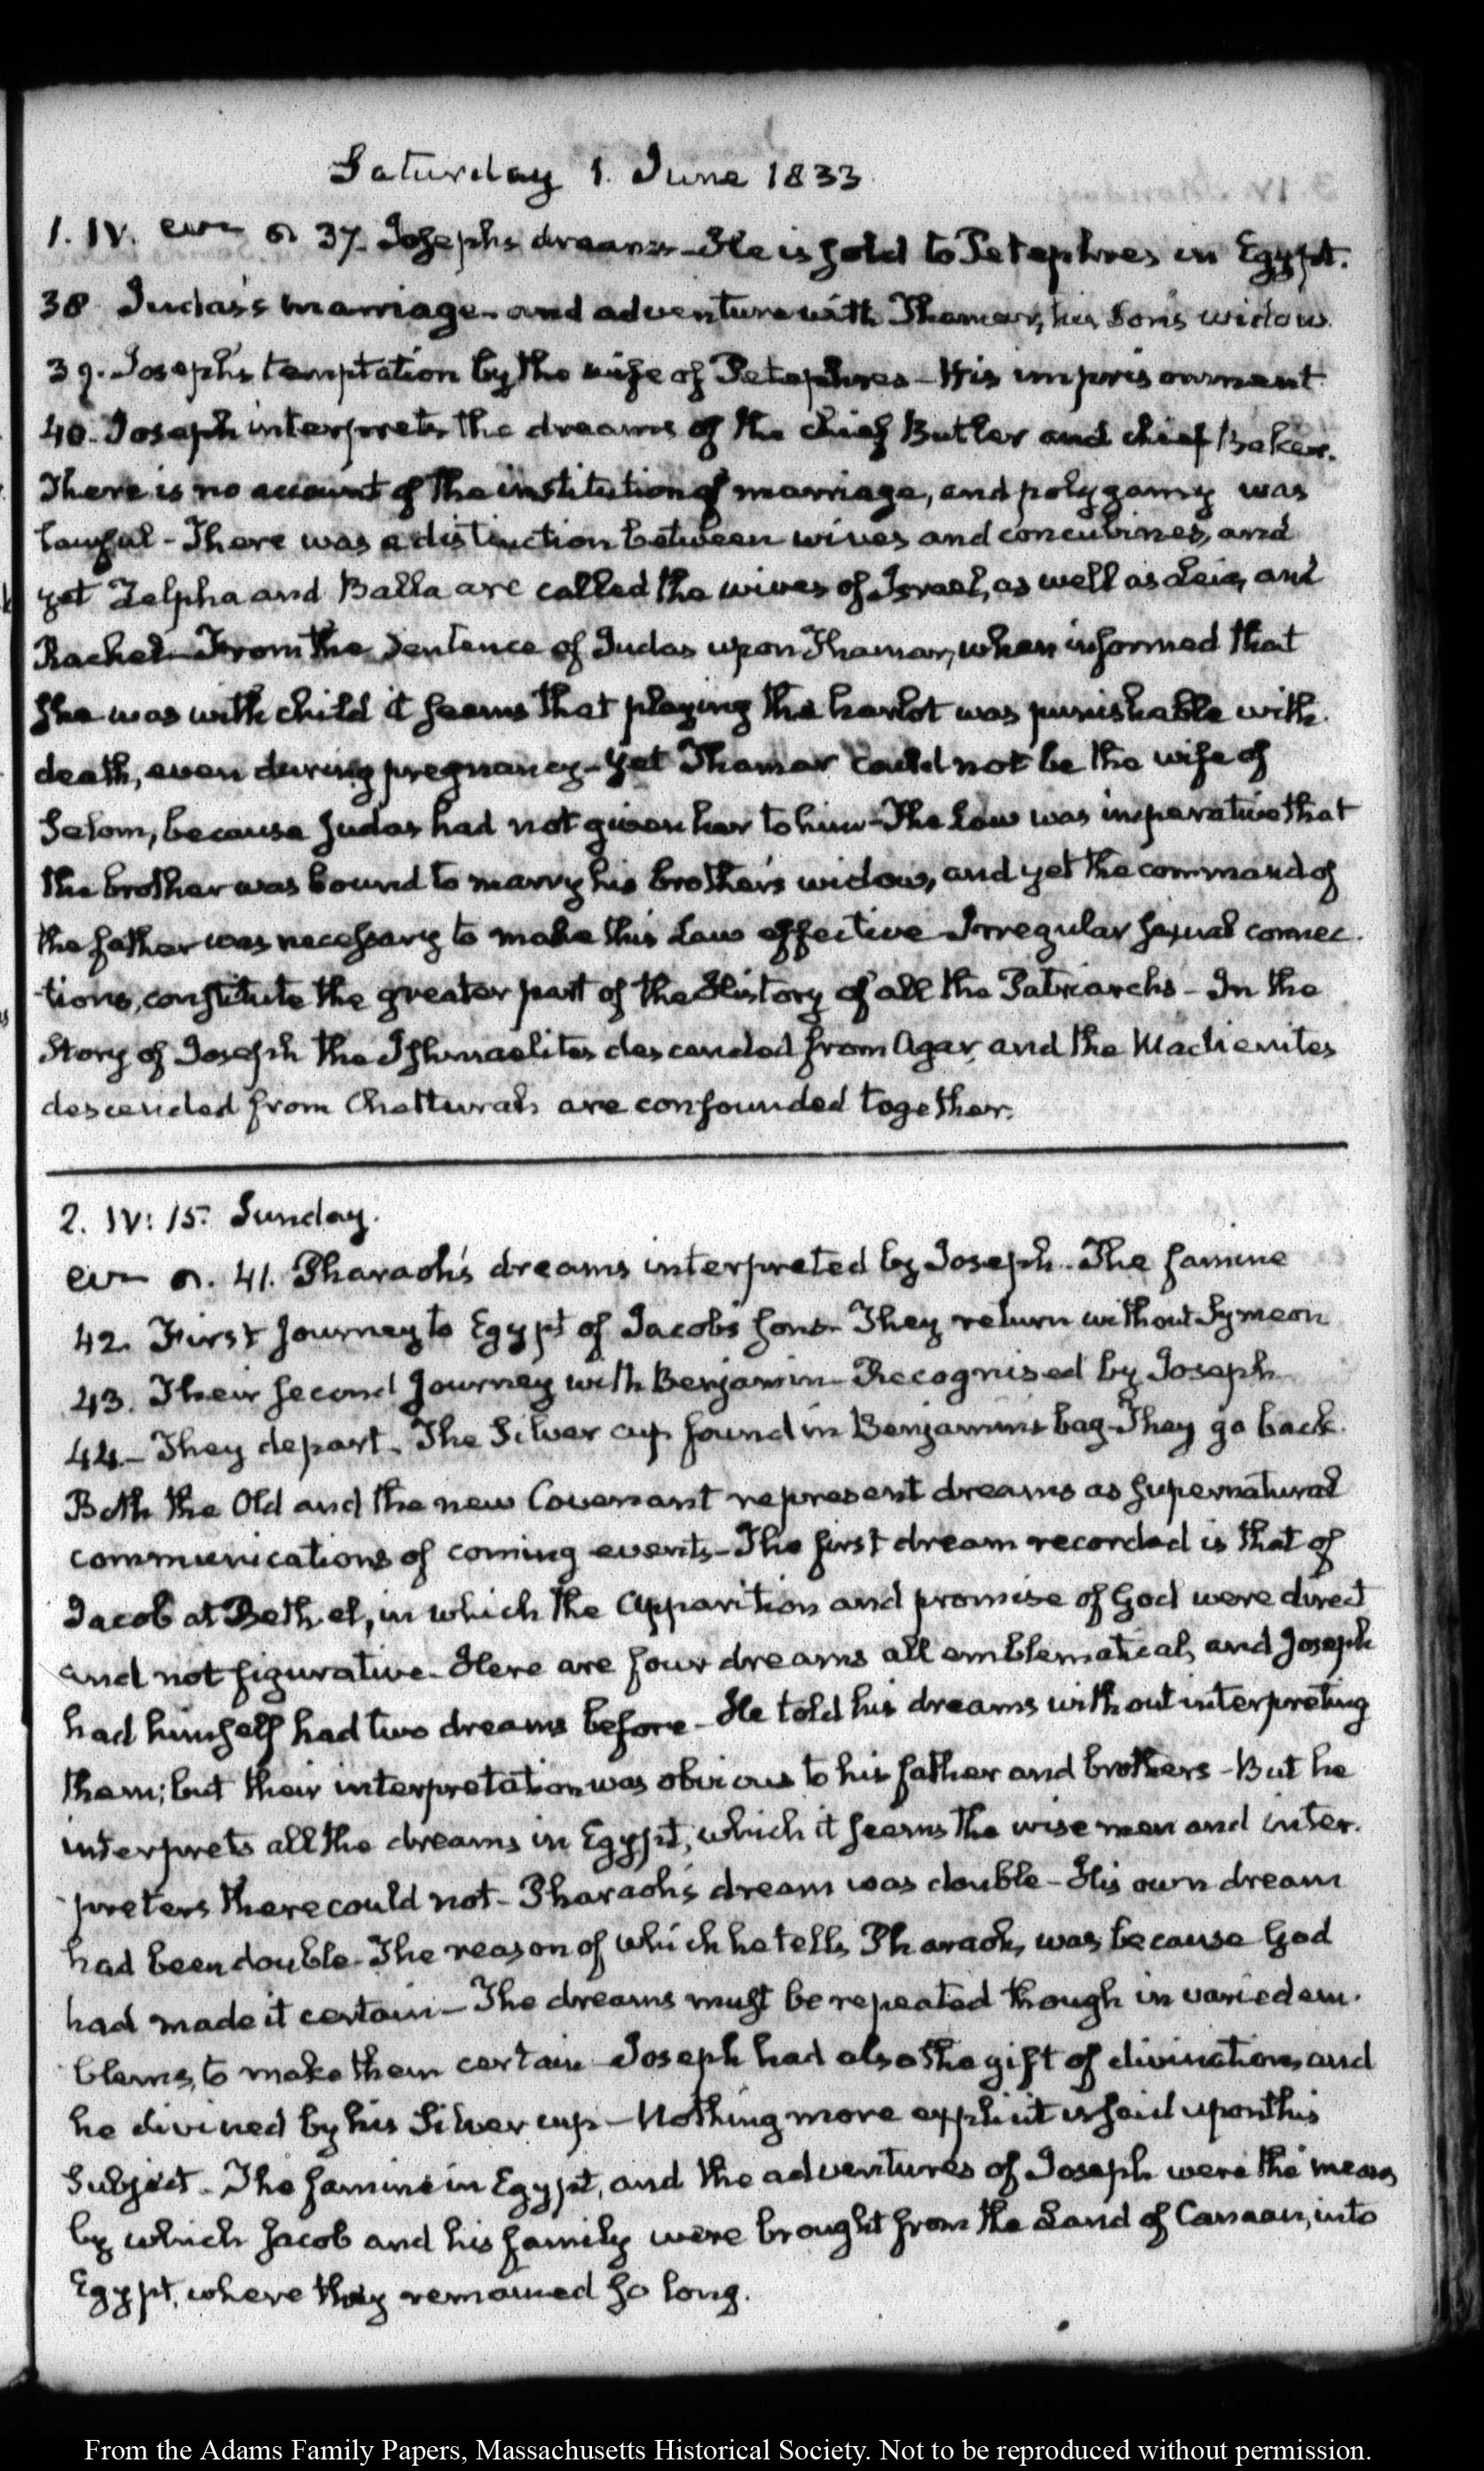 Saturday 1. June 1833
1. IV. 37. Josephs dreams - He is sold to Petephres in Egypt.
38 Judas's marriage - and adventure with Thamar, his Son's widow.
39. Joseph's temptation by the wife of Petephres - His imprisonment.
40. Joseph interprets the dreams of the chief Butler and chief Baker.
There is no account of the institution of marriage, and polygamy was
lawful - There was a distinction between wives and concubines, and
yet Zelpha and Balla are called the wives of Israel, as well as Leia, and
Rachel - From the Sentence of Judas upon Thamar, when informed that
she was with child it seems that playing the harlot was punishable with
death, even during pregnancy - yet Thamar could not be the wife of
Selom, because Judas had not given her to him - The Law was imperative that
the brother was bound to marry his brother's widow, and yet the command of
the father was necessary to make this Law effective - Irregular sexual connec-
tions, constitute the greater part of the History of all the Patriarchs - In the
Story of Joseph the Ishmaelites descended from Agar, and the Madienites
descended from Chetturah are confounded together.
2. IV: 15. Sunday.
41. Pharaoh's dreams interpreted by Joseph - The famine
42. First Journey to Egypt of Jacob's sons - They return without Symeon
43. Their second Journey with Benjamin - Recognised by Joseph
44 - They depart - The Silver cup found in Benjamins bag - They go back.
Both the Old and the new Covenant represent dreams as supernatural
communications of coming events - The first dream recorded is that of
Jacob at Bethel, in which the apparition and promise of God were direct
and not figurative - Here are four dreams all emblematical, and Joseph
had himself had two dreams before - He told his dreams without interpreting
them; but their interpretation was obvious to his father and brothers - But he
interprets all the dreams in Egypt, which it seems the wise men and inter-
preters there could not - Pharaoh's dream was double - His own dream
had been double - The reason of which he tells Pharaoh, was because God
had made it certain - The dreams must be repeated though in varied em-
blems, to make them certain - Joseph had also the gift of divination, and
he divined by his Silver cup - Nothing more explicit is said upon this
Subject - The famine in Egypt, and the adventures of Joseph were the means
by which Jacob and his family were brought from the Land of Canaan, into
Egypt, where they remained so long.
From the Adams Family Papers, Massachusetts Historical Society. Not to be reproduced without permission.